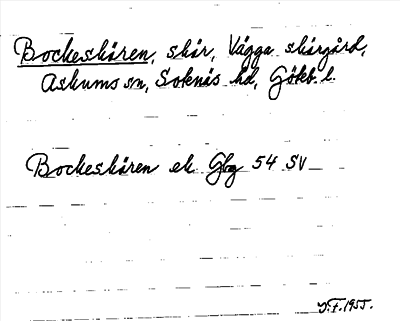 Bockeskären, skär, Vägga skärgård,
Askums sn, Sotenäs hd, Götebg. l.
Bockeskären ek Gbg 54 SV
Y.F. 1955.